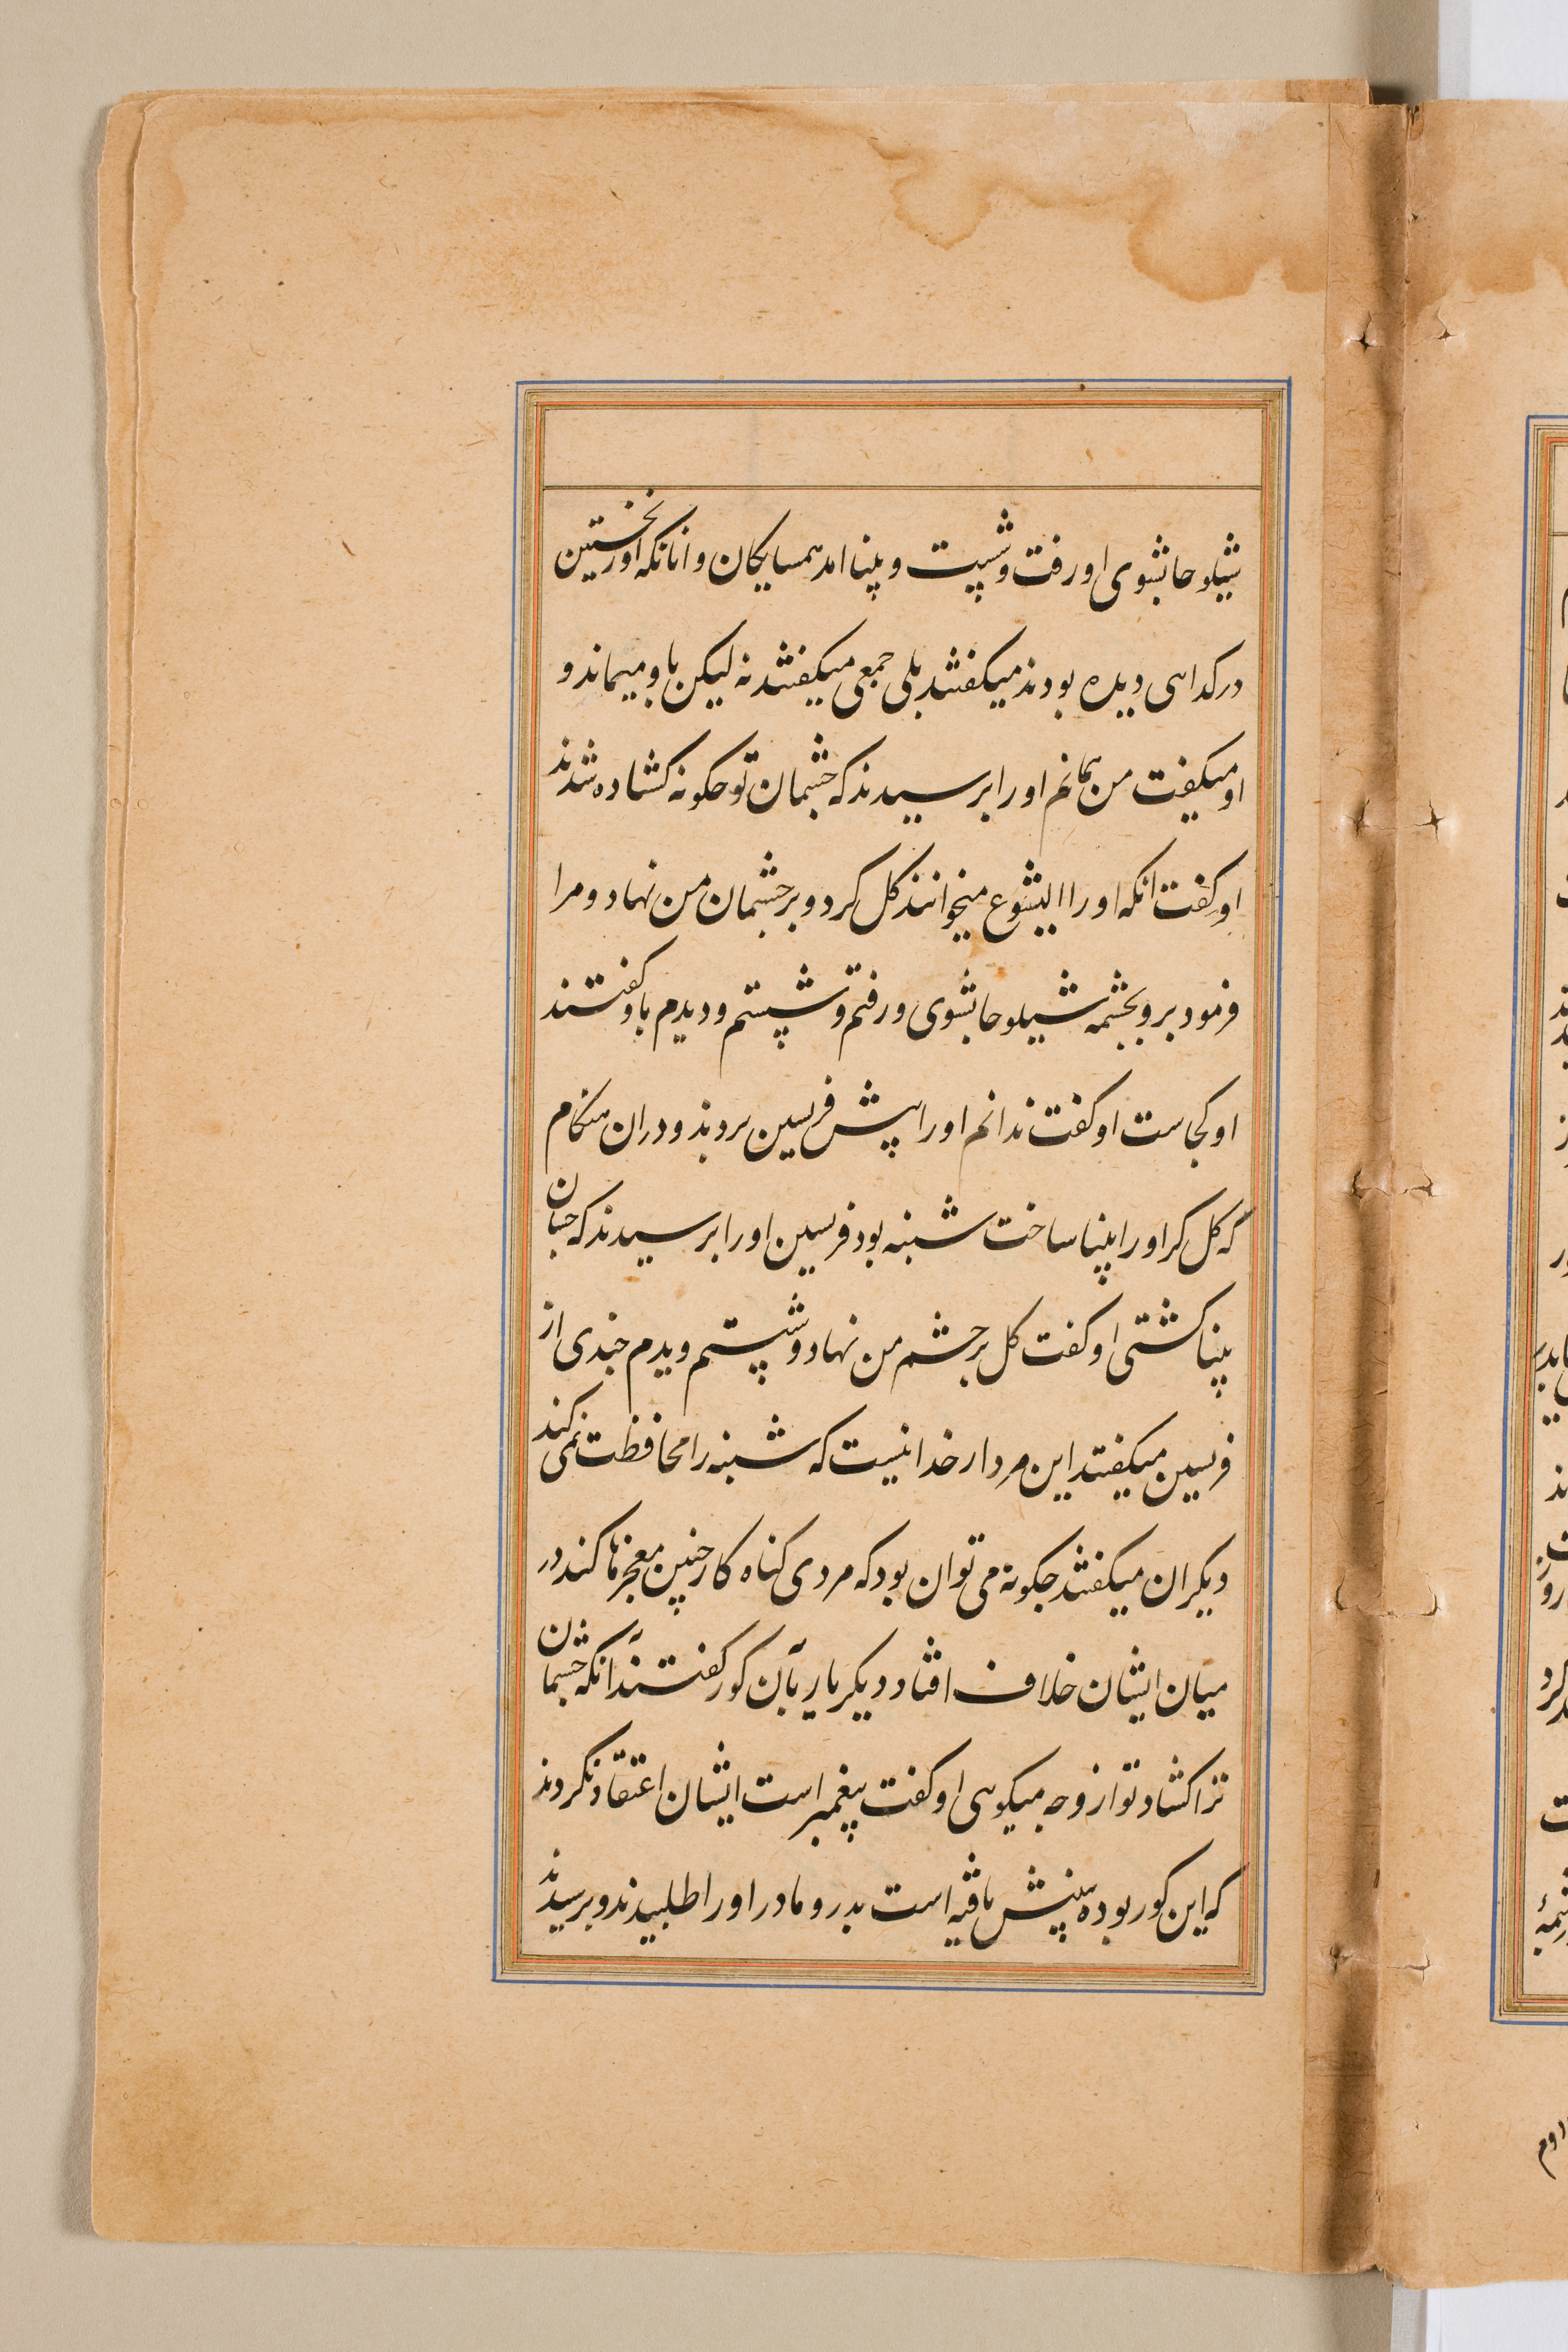 شیلوحا بشوی او رفت و شست و بینا امد همسایکان و انانکه او را نخستین
در کدایی دیده بودند میکفتند بلی جمعی میکفتند نه لیکن باو میماند و
او میکفت من همانم او را پرسیدند که چشمان تو چکونه کشاده شدند
او کفت انکه او را ایشوع میخوانند کل کرد و بر چشمان من نهاد و مرا
فرمود برو بچشمه شیلوحا بشوی و رفتم و شستم و دیدم باو کفتند
او کجاست او کفت ندانم او را پیش فریسین بردند و دران هنکام
که کل کر او را بینا ساخت شنبه بود فریسین او را پرسیدند که چسان
بینا کشتی او کفت کل بر چشم من نهاد و شستم و دیدم چندی از
فریسین میکفتند این مرد از خدا نیست که شنبه را محافظت نمی کند
دیکران میکفتند چکونه می توان بود که مردی کناه کار چنین معجزها کند در
میان ایشان خلاف افتاد دیکر بار بآن کور کفتند آنکه چشمان
ترا کشاد تو از وچه میکویی او کفت پیغمبر است ایشان اعتقاد نکردند
که این کور بوده بینش یافته است پدر و مادر او را طلبیدند و پرسیدند